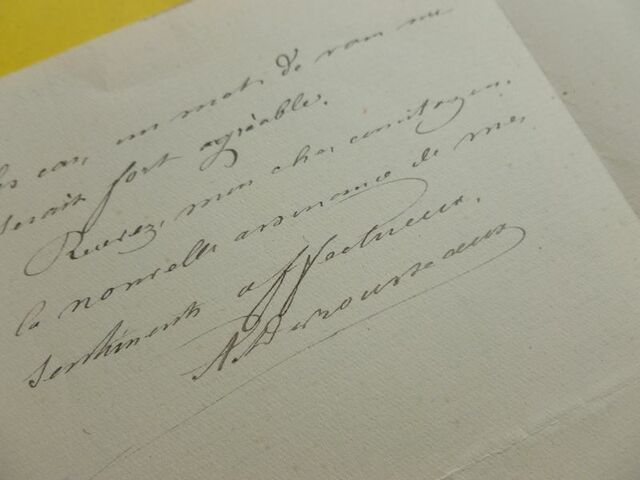 les cas, un mot de vous me
serait fort agréable.
Recevez, mon cher concitoyen,
la nouvelle assurance de mes
sentiments affectueux.
A. Desrousseaux